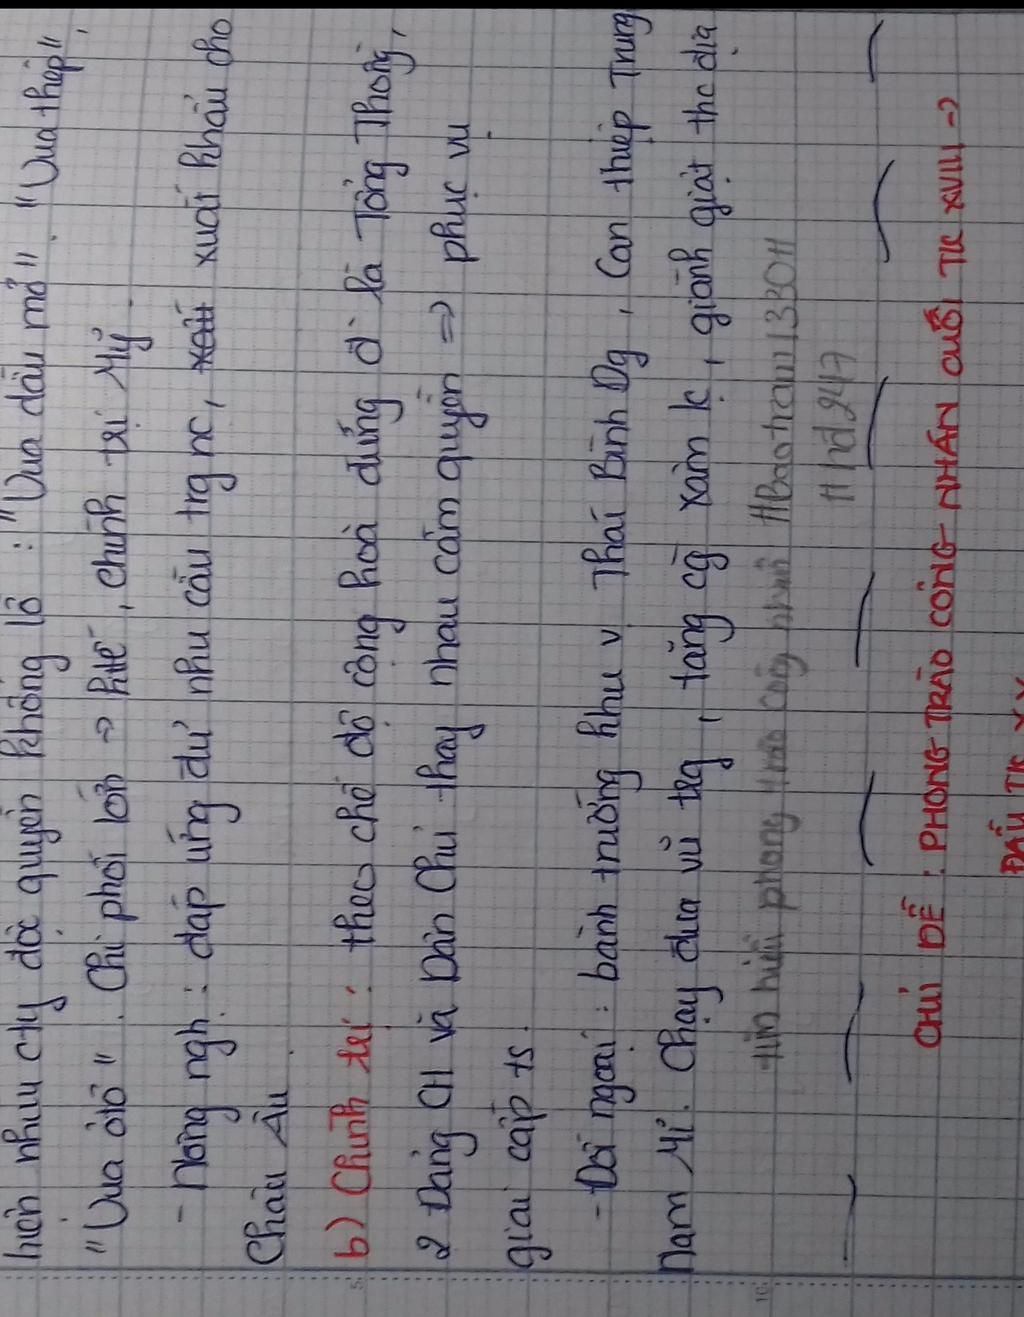 hiện nhìu cty độc quyền khổng lồ : "Vua dầu mỏ" . "Vua thép" ,
"Vua ôtô" . Chi phối lớn => ktế , chính trị Mỹ .
- Nông ngh : đáp ứng đủ nhu cầu trg nc , xuất khẩu cho
Châu Âu .
b) Chính trị : theo chế độ cộng hoà đứng đ' là Tổng Thống ,
2 Đảng CH và Dân Chủ thay nhau cầm quyền => phục vụ
giai cấp ts .
- Đối ngoại : bành trướng khu v Thái Bình Dg , Can thiệp Trung
Nam Mĩ . Chạy đua vũ trg , tăng cg xâm k , giành giật thc địa
tìm hiểu phong trào công nhân #Baotram1330H
#hd247
CHỦ ĐỀ : PHONG TRÀO CÔNG NHÂN CUỐI TK XVIII ->
ĐẦU TK XX